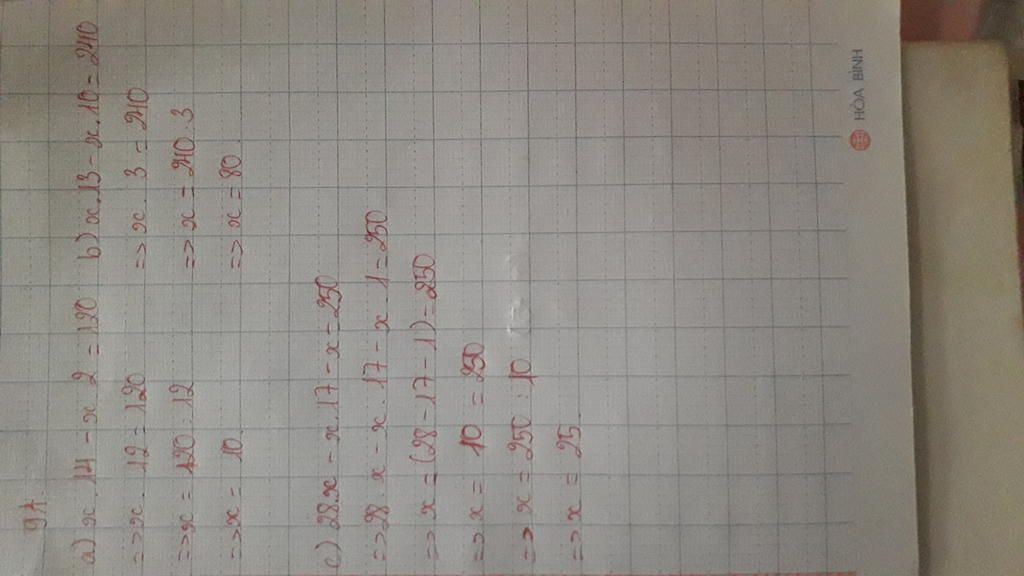 9A
a) x.14 - x 2 = 120 b) x.13 - x.10 = 240
=> x . 12 = 120 => x . 3 = 240
=> x = 120 : 12 => x = 240 . 3
=> x = 10. => x = 80.
c) 28.x - x.17 - x = 250
=> 28 . x - x . 17 - x . 1 = 250
=> x = (28 - 17 - 1) = 250
=> x = 10 = 250
=> x = 250 : 10
=> x = 25.
HÒA BÌNH